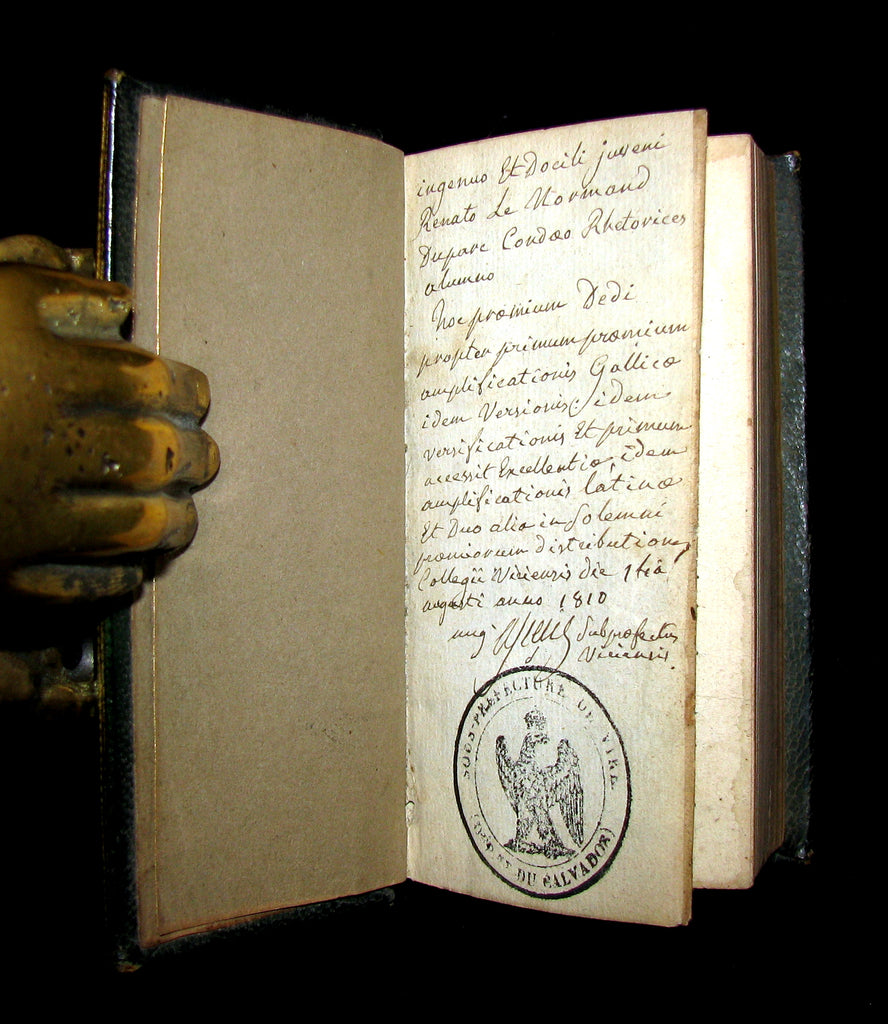 ingenuo Et Docili juveni
Renato Le Normand
Duparc Condæo Rhetorices
alumno
hoc præmium Dedi
propter primum præmium
amplificationis Gallicæ
idem Versionis; idem
versificationis Et primum
accessit Excellentiæ, idem
amplificationis latinæ
Et Duo alia in Solemni
præmiorum distributione
Collegii Viriensis die 14ia
augusti anno 1810
Subpræfectus
Viriensis.
SOUS-PREFECTURE DE VIRE
DU CALVADOS)